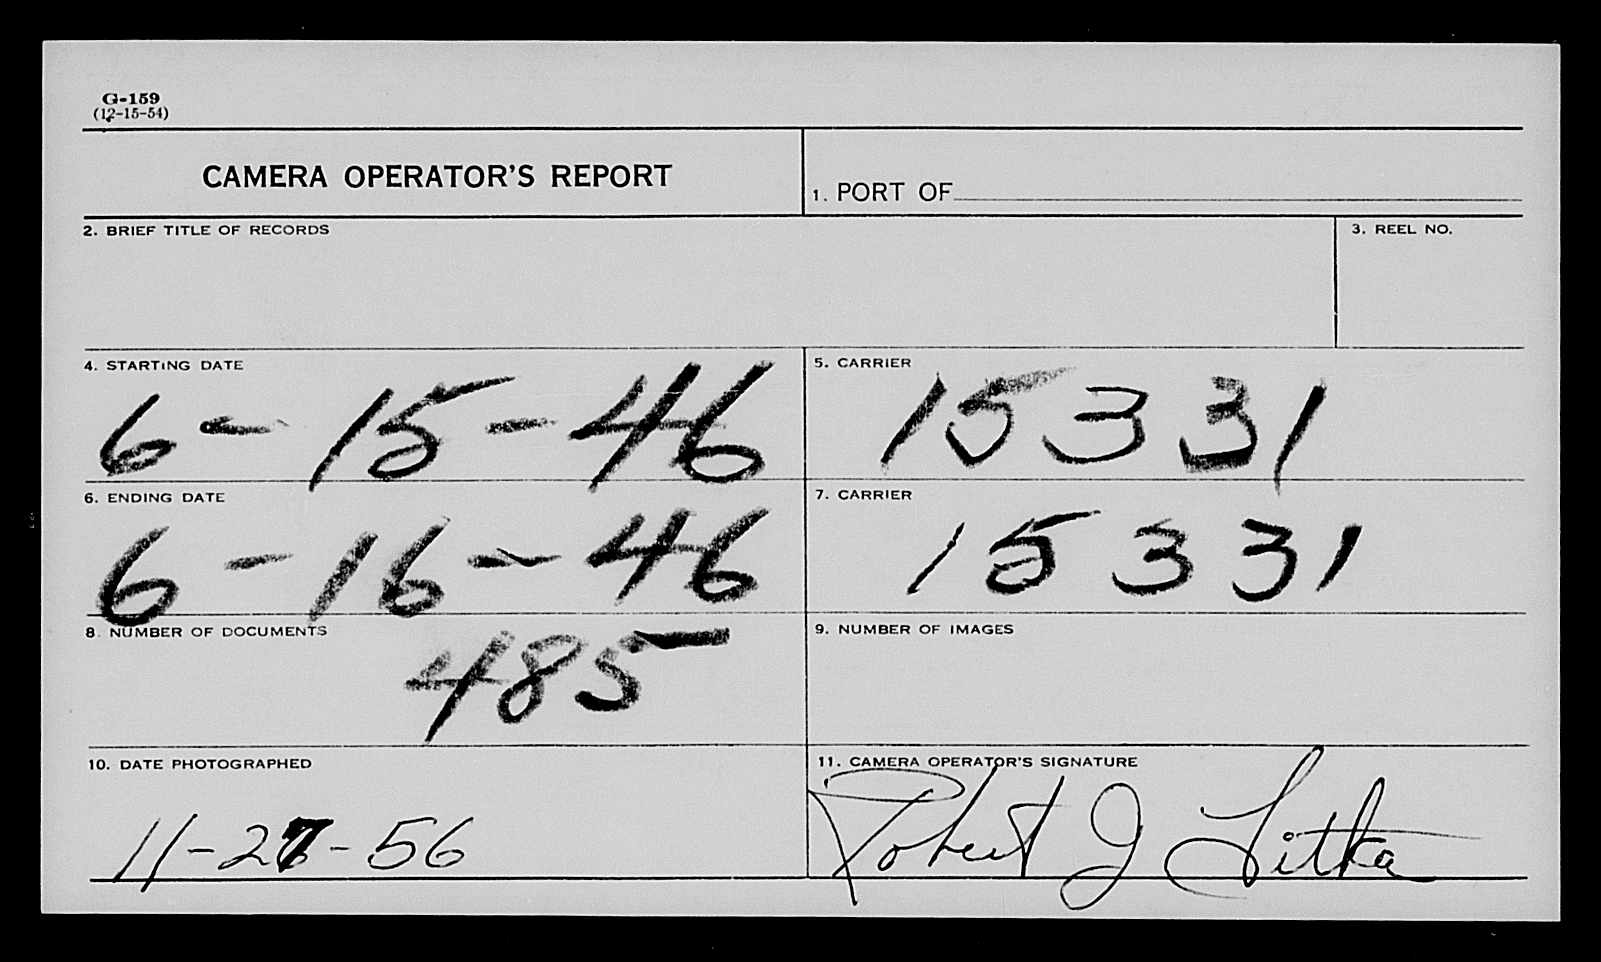 G-159
(12-15-54)
CAMERA OPERATOR'S REPORT
1. PORT OF
2. BRIEF TITLE OF RECORDS
3. REEL NO.
4. STARTING DATE
6-15-46
5. CARRIER
15331
6. ENDING DATE
6-16-46
7. CARRIER
15331
8. NUMBER OF DOCUMENTS
485
9. NUMBER OF IMAGES
10. DATE PHOTOGRAPHED
11-27-56
11. CAMERA OPERATOR'S SIGNATURE
Robert J Litka